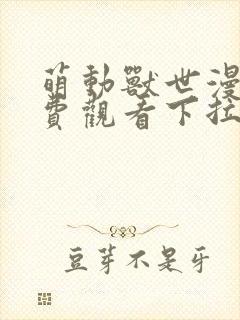 萌動獸世漫
費觀看下拉
豆芽不是牙